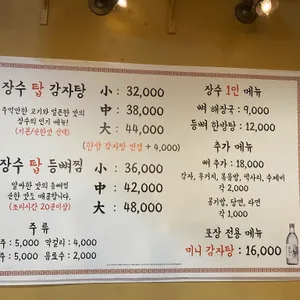 장수 탑 감자탕
小 : 32,000
주먹만한 고기와 얼큰한 맛의
장수의 인기 메뉴!
(기본/순한맛 선택)
中 : 38,000
大 : 44,000
(한방 감자탕 변경 + 4,000)
장수 탑 등뼈찜
小 : 36,000
알싸한 맛의 등뼈찜
순한 맛도 매콤합니다.
(조리시간 20분이상)
中 : 42,000
大 : 48,000
주 류
: 5,000 막걸리 : 4,000
: 5,000 음료수 : 2,000
장수 1인 메뉴
뼈 해장국 : 9,000
등뼈 한방탕 : 12,000
추가 메뉴
뼈 추가 : 18,000
감자, 우거지, 볶음밥, 떡사리, 수제비
각 2,000
공기밥, 당면, 라면
각 1,000
포장 전용 메뉴
미니 감자탕 : 16,000